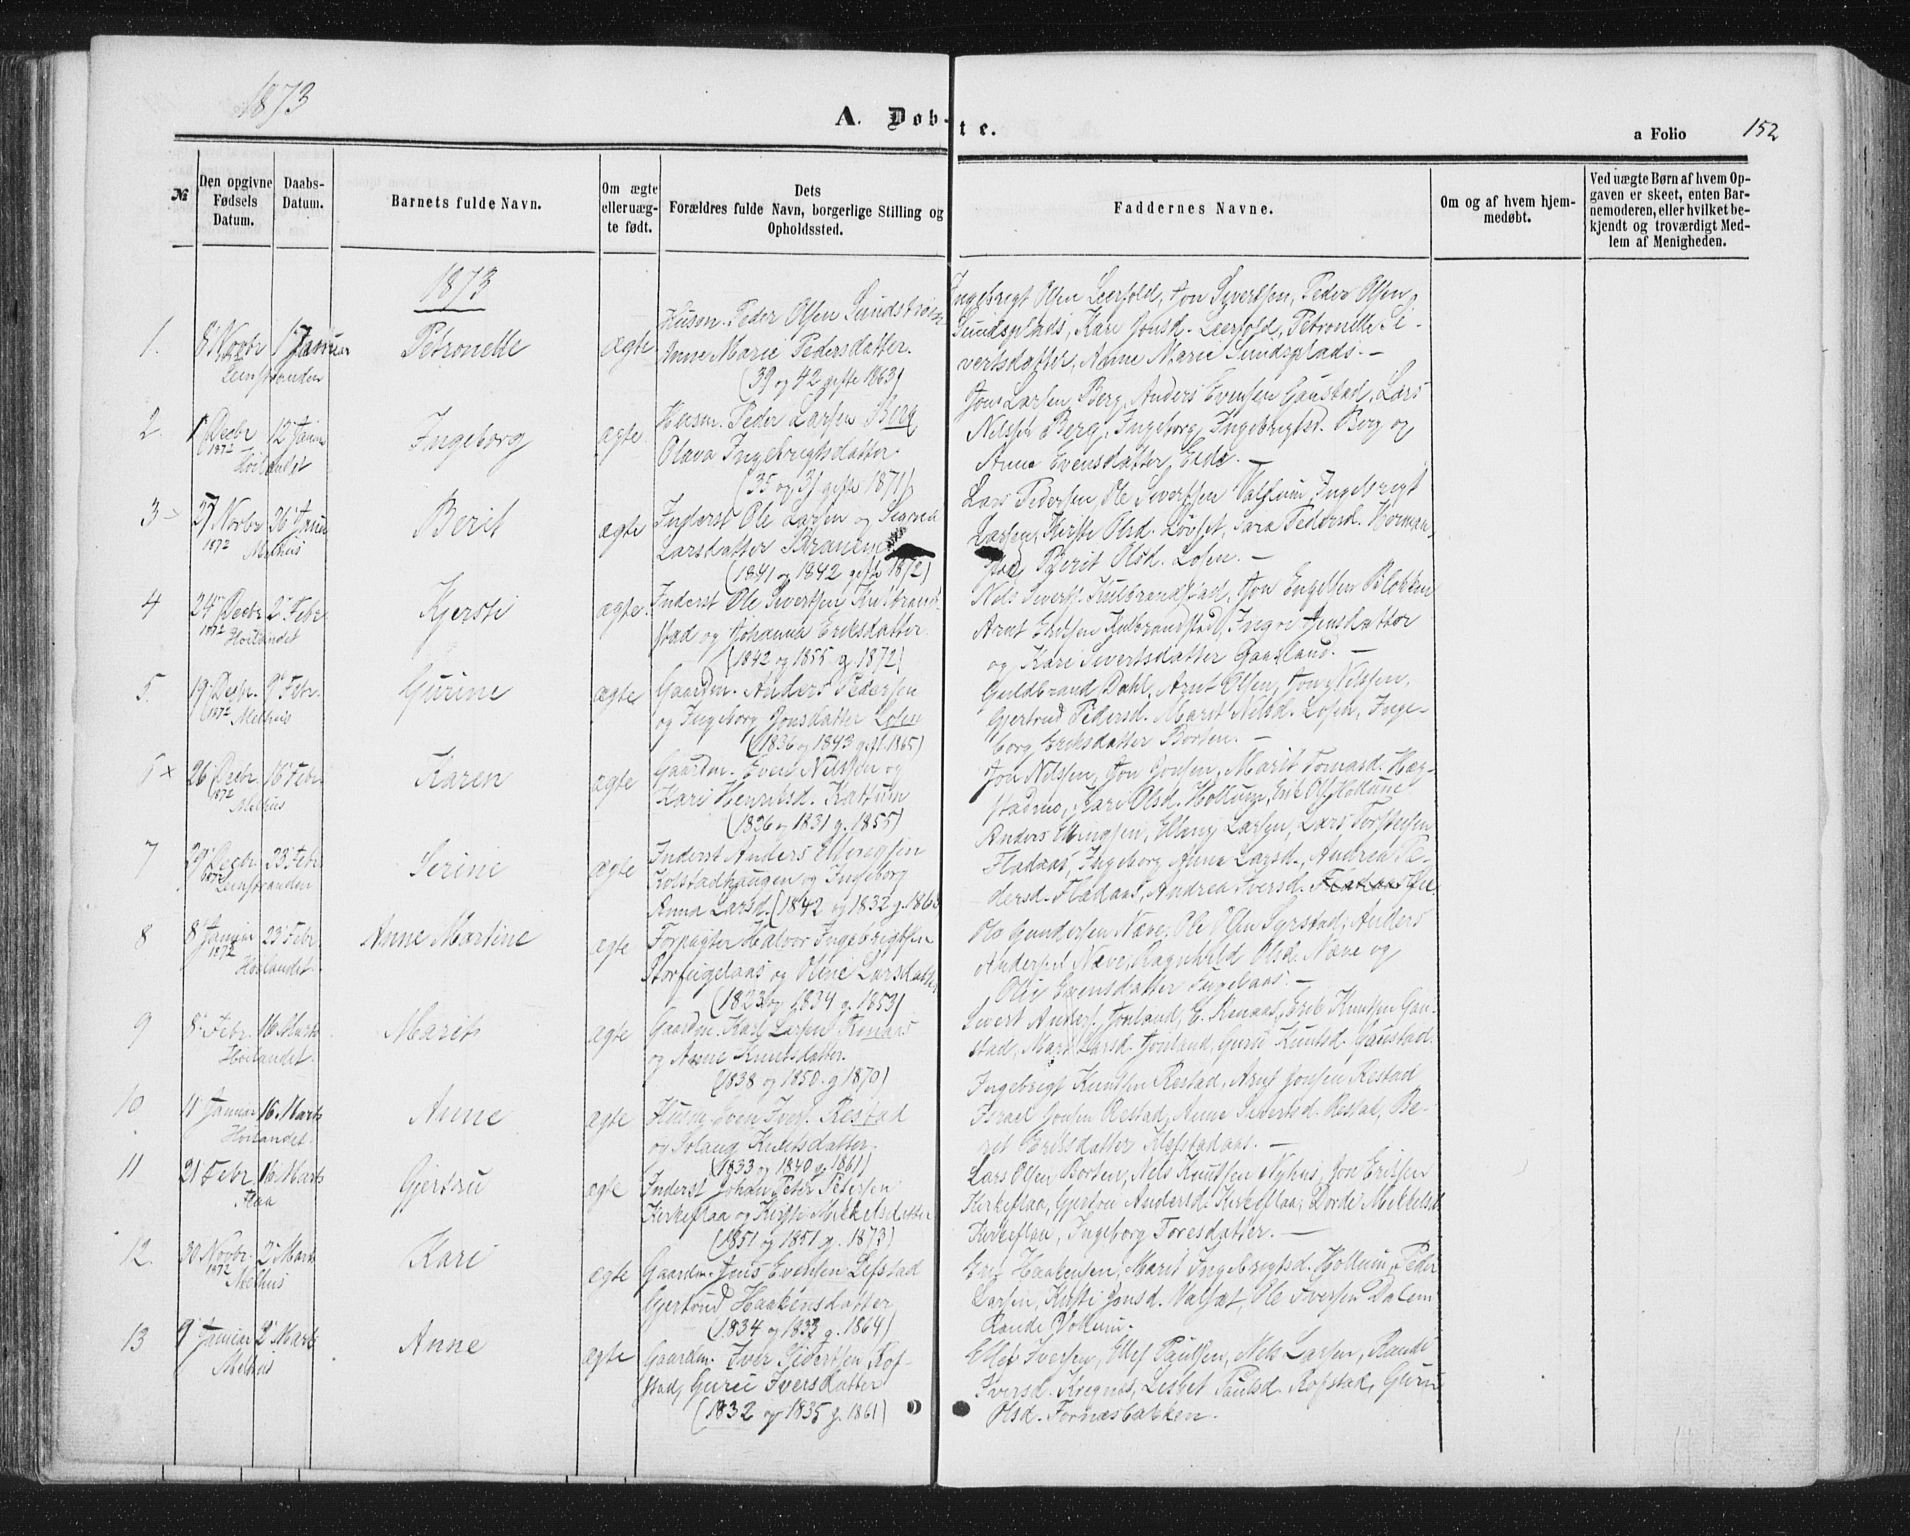 1873
A. Døb-te.
a Folio 152
№
Den opgivne Fødsels Datum.
Daabs-Datum.
Barnets fulde Navn.
Om ægte eller uæg-te født.
Dets Forældres fulde Navn, borgerlige Stilling og Opholdssted.
Faddernes Navne.
Om og af hvem hjem-medøbt.
Ved uægte Børn af hvem Op-gaven er skeet, enten Bar-nemoderen, eller hvilket be-kjendt og troværdigt Med-lem af Menigheden.
1873
1. 8 Novbr 1872 1 Januar Petronelle ægte Husm. Peder Olsen
Leinstranden
Anne Marie Pedersdatter.
(39 og 42 gifte 1863)
Ingebrigt Olsen Leerfold, Jon Syvertsen, Peder Olsen
Sundsplads, Kari Jonsd. Leerfold, Petronelle Si-
vertsdatter, Anne Marie Sundsplads. —
2. 1 Decbr 1872 12 Januar Ingeborg ægte Husm. Peder Larsen Berg
Høilandet
Olava Ingebrigtsdatter.
(35 og 31 gifte 1871)
Jon Larsen Berg, Anders Evensen Gaustad, Lars
Nilssen Berg, Ingeborg Ingebrigtsd. Berg og
Anne Evensdatter Eide. —
3 27 Novbr 1872 26 Januar Berit ægte Inderst Ole Larsen og
Melhus
Larsdatter
(1841 og 1842 gifte 1872)
Lars Pedersen, Ole Sivertsen Valslum, Ingebrigt
Larsen, Kirsti Olsd. Løvset, Sara Pedersd.
Berit Olsd. Losen. —
4 24 Decbr 1872 2 Febr. Kjersti ægte Inderst Ole Sivertsen Kulbrand-
Høilandet
stad og Johanna Eriksdatter
(1842 og 1855 g. 1872)
Nils Siverts. Kulbrandstad, Jon Engelsen Blokken
Arnt Eriksen Kulbrandstad, Inger Jensdatter
og Kari Sivertsdatter Gaasland. —
5. 19 Decbr. 1872 9 Febr. Gurine ægte Gaardm. Anders Pedersen
Melhus
og Ingeborg Jonsdatter Losen
(1836 og 1843 gift. 1865)
Guldbrand Dahl, Arnt Olsen, Jon Nilssen,
Gjertrud Pedersd. Marit Nilsd. Losen, Inge-
borg Eriksdatter Borten. —
26 Decbr 1872 16 Febr Karen ægte Gaardm. Even Nilssen og
Melhus
Kari Henriksd.
(1826 og 1831 g. 1855)
Jon Nilssen, Jon Jonsen, Marit Tomasd. Hag-
Kari Olsd. Hollum, Erik Ols. Hollum
7 29 Decbr 1872 23 Febr Serine ægte Inderst Anders Ellingsen
Leinstranden
Kolstadhaugen og Ingeborg
Anna Larsd. (1842 og 1832 g. 186
Anders Ellingsen, Elling Larsen, Lars Torstensen
Fladaas, Ingeborg Anna Larsd., Andrea Pe-
dersd. Fladaas, Andrea Iversd.
8 8 Januar 1872 23 Febr. Anne Martine ægte Forpagter Halvor Ingebrigtsen
Høilandet.
Storfuglaas og Oline Larsdatter
(1823 og 1834 g. 1853)
Ole Gundersen Næve, Ole Olsen Syrstad, Anders
Andersen Næve, Ragnhild Olsd. Næve og
Oline Evensdatter Fuglaas. —
9 8 Febr. 16 Marts Marit ægte Gaardm. Karl Larsen
Høilandet.
og Anne Knutsdatter.
(1838 og 1850. g 1870)
Sivert Anders. Jonland, E. Renaas, Erik Knutsen Gau-
stad, Marit Larsd. Jonland, Guru Knutsd. Gaustad.
10 11 Januar 16 Marts Anne ægte Husm. Even Ivers. Restad
Høilandet.
og Solaug Knutsdatter.
(1833 og 1840 g. 1861)
Ingebrigt Knutsen Restad, Arnt Jonsen Restad
Israel Jonsen Restad, Anne Sivertsd. Restad, Be-
ret Eriksdatter Klefstadaas. —
11 21 Febr 16 Marts Gjertru ægte Inderst Johan Peter Petersen
Flaa
Kirkeflaa og Kirsti Mikkelsdatter
(1851 og 1851 g. 1873)
Lars Olsen Borten, Nils Knutsen Nyhus, Jon Eriksen
Kirkeflaa, Gjertru Andersd. Kirkeflaa, Dordi Mikkelsd
Kirkeflaa, Ingeborg Toresdatter. —
12. 30 Novbr. 1872 2 Marts Kari ægte Gaardm. Jens Evensen Lefstad
Melhus
Gjertrud Haakensdatter
(1834 og 1833 g. 1864)
Erik Haakensen, Marit Ingebrigtsd. Hollum, Peder
Larsen, Kirsti Jonsd. Valsæt, Ole Iversen Dalem
Rande Hollum.
13 9 Januar 2 Marts Anne ægte Gaardm. Iver Sivertsen Rof-
Melhus
stad, Guru Iversdatter
(1832 og 1835 g. 1861)
Ellef Iversen, Ellef Paulsen, Nils Larsen, Randi
Iversd. Kregnes, Lisbet Paulsd. Rofstad, Guru
Olsd. Fornesbakken.